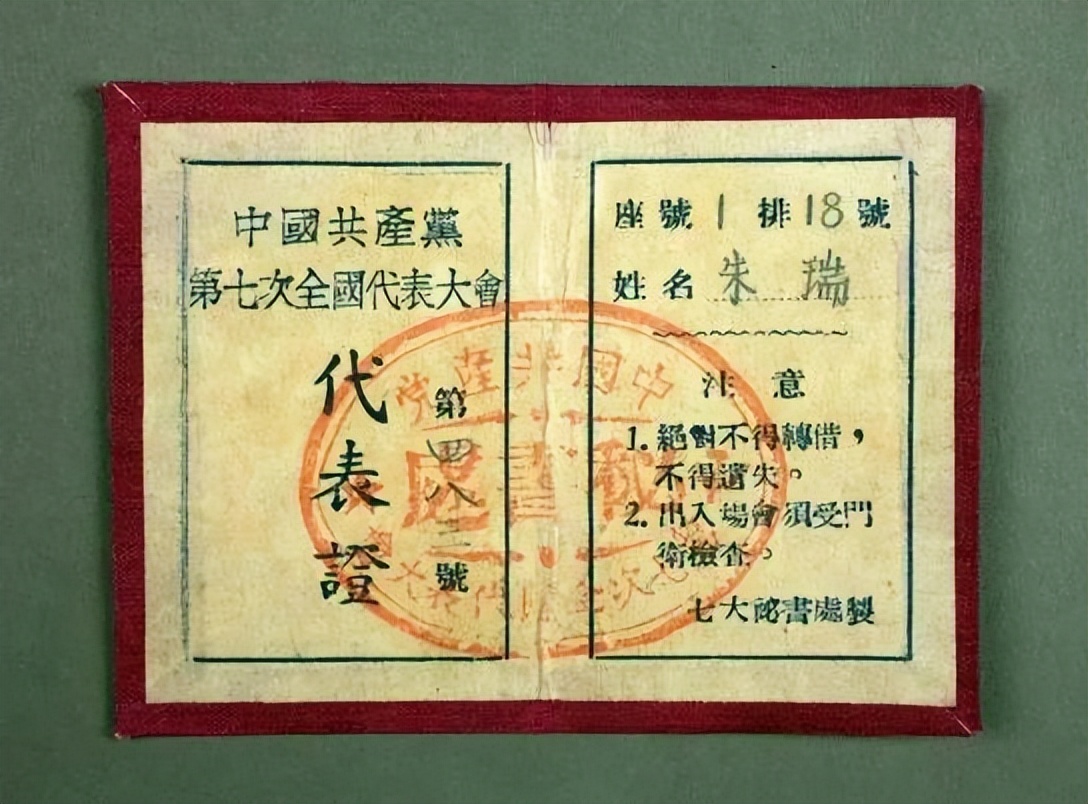 中國共產黨
第七次全國代表大會
代表證
第四八三號
座號 1 排 18 號
姓名 朱 瑞
注 意
1. 絕對不得轉借，
不得遺失。
2. 出入場會須受門
衛檢查。
七大祕書處製
中國共產党
秘書處